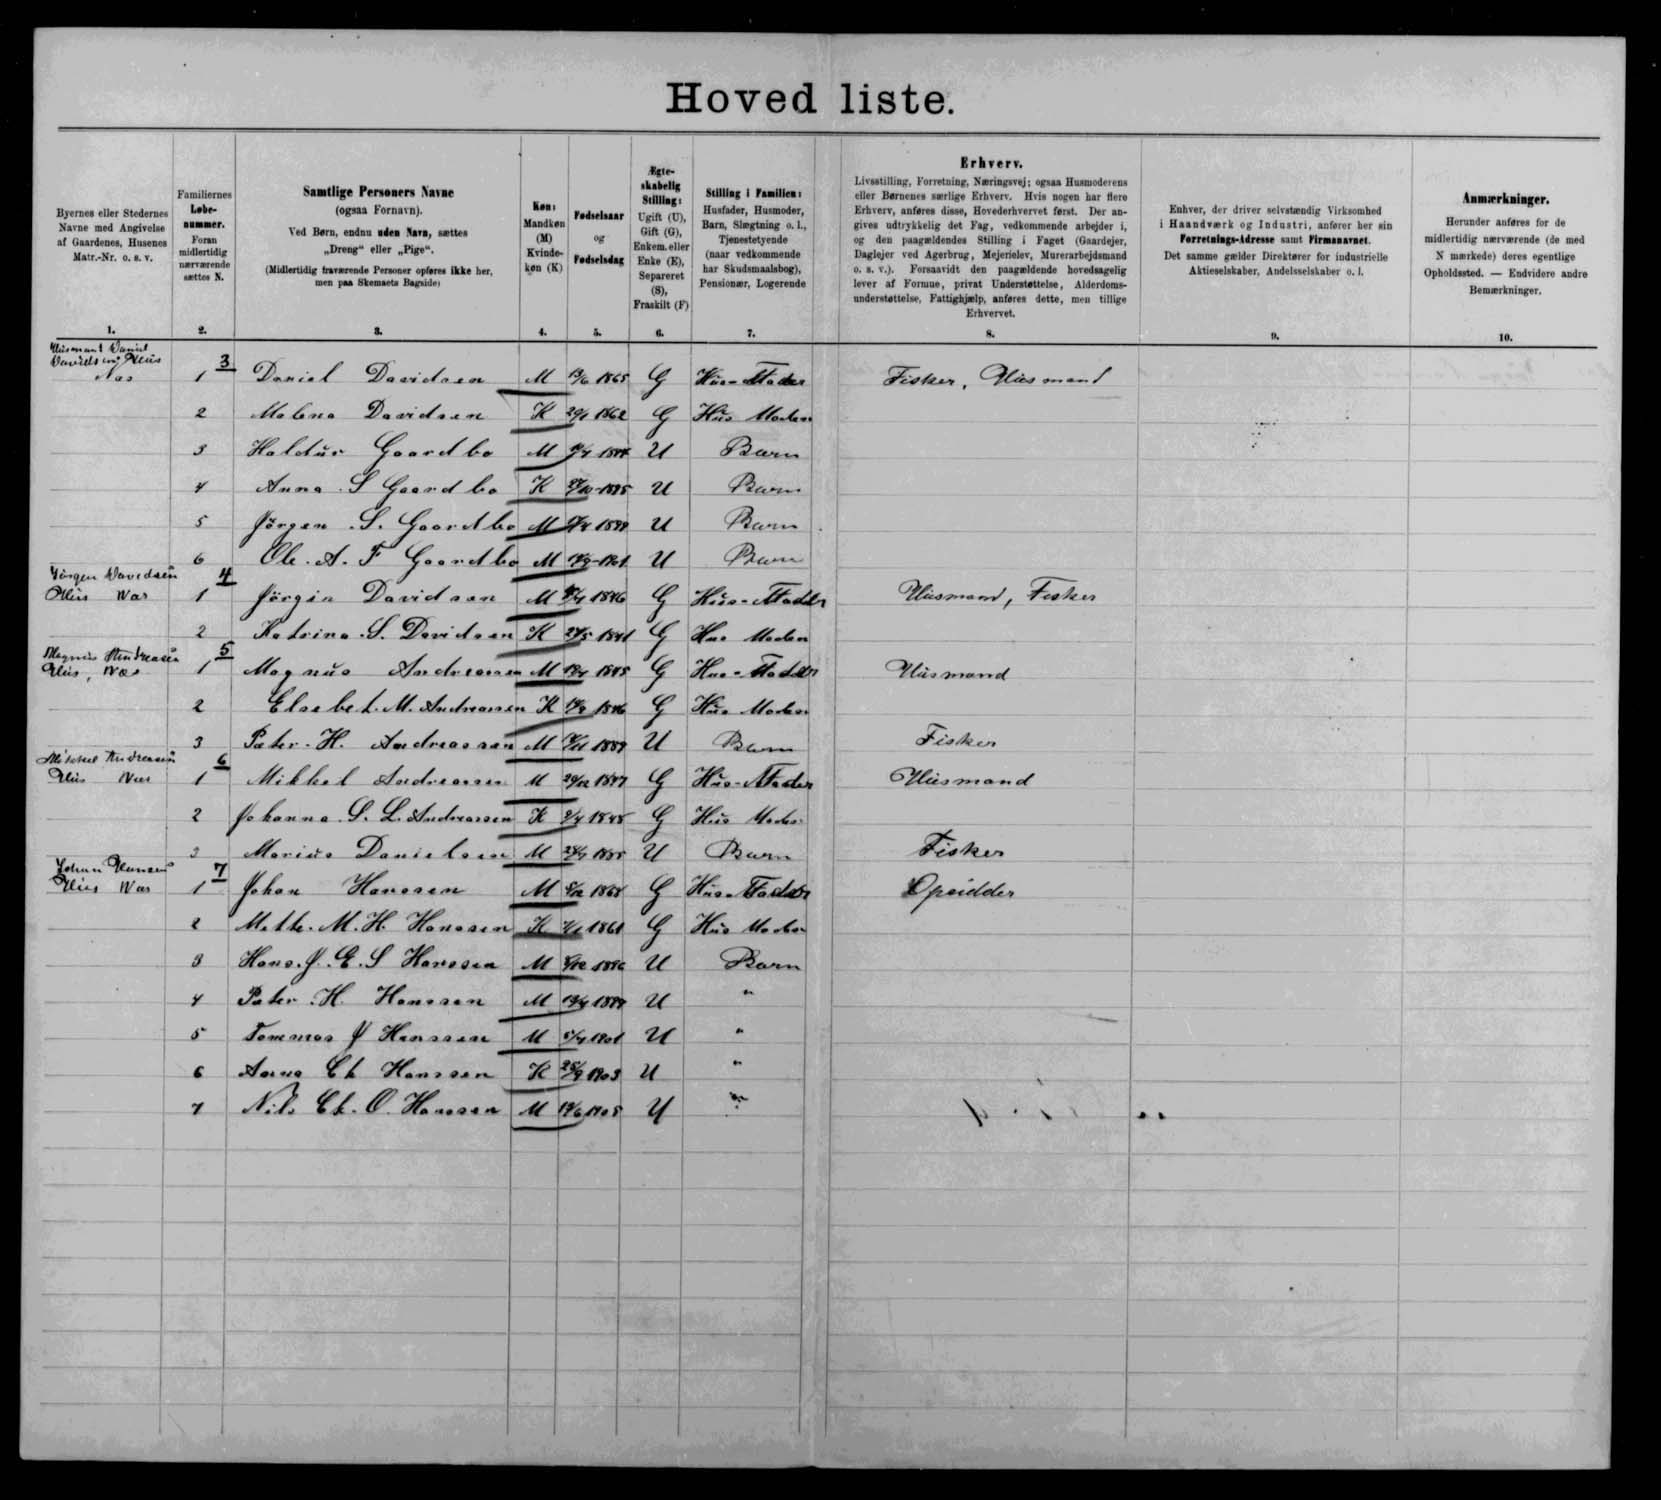 Hoved liste.
Byernes eller Stedernes
Navne med Angivelse
af Gaardenes, Husenes
Matr.-Nr. o. s. v.
1.
Familiernes
Løbe-
nummer.
Foran
midlertidig
nærværende
sættes N.
2.
Samtlige Personers Navne
(ogsaa Fornavn).
Ved Børn, endnu uden Navn, sættes
„Dreng“ eller „Pige“.
(Midlertidig fraværende Personer opføres ikke her,
men paa Skemaets Bagside)
3.
Køn:
Mandkøn
(M)
Kvinde-
køn (K)
4.
Fødselsaar
og
Fødselsdag
5.
Ægte-
skabelig
Stilling:
Ugift (U),
Gift (G),
Enkem. eller
Enke (E),
Separeret
(S),
Fraskilt (F)
6.
Stilling i Familien:
Husfader, Husmoder,
Barn, Slægtning o. l.,
Tjenestetyende
(naar vedkommende
har Skudsmaalsbog),
Pensionær, Logerende
7.
Erhverv.
Livsstilling, Forretning, Næringsvej; ogsaa Husmoderens
eller Børnenes særlige Erhverv. Hvis nogen har flere
Erhverv, anføres disse, Hovederhvervet først. Der an-
gives udtrykkelig det Fag, vedkommende arbejder i,
og den paagældendes Stilling i Faget (Gaardejer,
Daglejer ved Agerbrug, Mejerielev, Murerarbejdsmand
o. s. v.). Forsaavidt den paagældende hovedsagelig
lever af Formue, privat Understøttelse, Alderdoms-
understøttelse, Fattighjælp, anføres dette, men tillige
Erhvervet.
8.
Enhver, der driver selvstændig Virksomhed
i Haandværk og Industri, anfører her sin
Forretnings-Adresse samt Firmanavnet.
Det samme gælder Direktører for industrielle
Aktieselskaber, Andelsselskaber o. l.
9.
Anmærkninger.
Herunder anføres for de
midlertidig nærværende (de med
N mærkede) deres egentlige
Opholdssted. — Endvidere andre
Bemærkninger.
10.
Husmand Daniel
Davidsens Hus
Nas 3
1 Daniel Davidsen M 1865 G Hus-Fader Fisker, Husmand
2 Malena Davidsen K 1862 G Hus Moder
3 Haldur Gaardbo M U Barn
4 Anna S Gaardbo K 1895 U Barn
5 Jørgen S. Gaardbo M U Barn
6 Ole A. F Gaardbo M 1901 U Barn
Jørgen Davidsen 4
Hus Nas 1 Jørgen Davidsen M 1846 G Hus-Fader Husmand, Fisker
2 Katrina S. Davidsen K 1841 G Hus Moder
Magnus Andreasen 5
Hus, Nas 1 Magnus Andreasen M 1845 G Hus-Fader Husmand
2 Elsebet. M. Andreasen K 1846 G Hus Moder
3 Peter. H. Andreasen M 1889 U Barn Fisker
Mikkel Andreasen 6
Hus Nas 1 Mikkel Andreasen M 29/12 1847 G Hus-Fader Husmand
2 Johanna. S. L. Andreasen K G Hus Moder
3 Marius Danielsen M 1885 U Barn Fisker
Johan Hansen 7
Hus Nas 1 Johan Hanssen M G Hus-Fader Opsidder
2 Mette. M. H. Hanssen K G Hus Moder
3 Hans. J. E. S Hanssen M 1896 U Barn
4 Peter. H. Hanssen M 1899 U "
5 Tommas J Hanssen M 5/4 1901 U "
6 Anna Ch Hanssen K 25/9 1903 U "
7 Nils Ch. O. Hanssen M 1905 U "